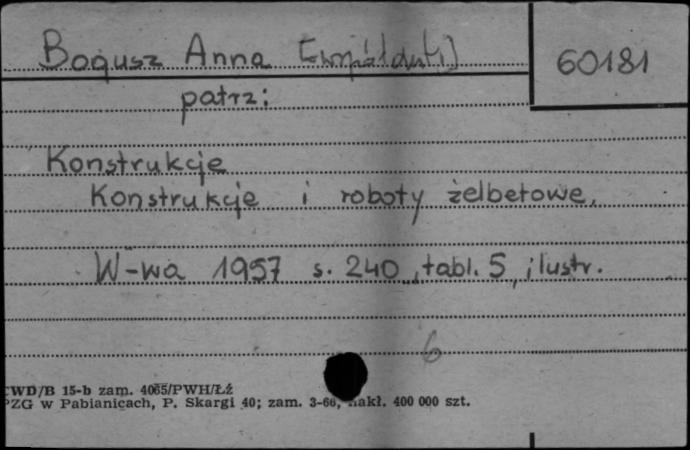 Bogusz Anna
60181
patrz:
Konstrukcje
Konstrukcje i roboty żelbetowe.
W-wa 1957 s. 240, tabl. 5, ilustr.
6
CWD/B 15-b zam. 4065/PWH/Łź
PZG w Pabianicach, P. Skargi 40; zam. 3-66, nakł. 400 000 szt.